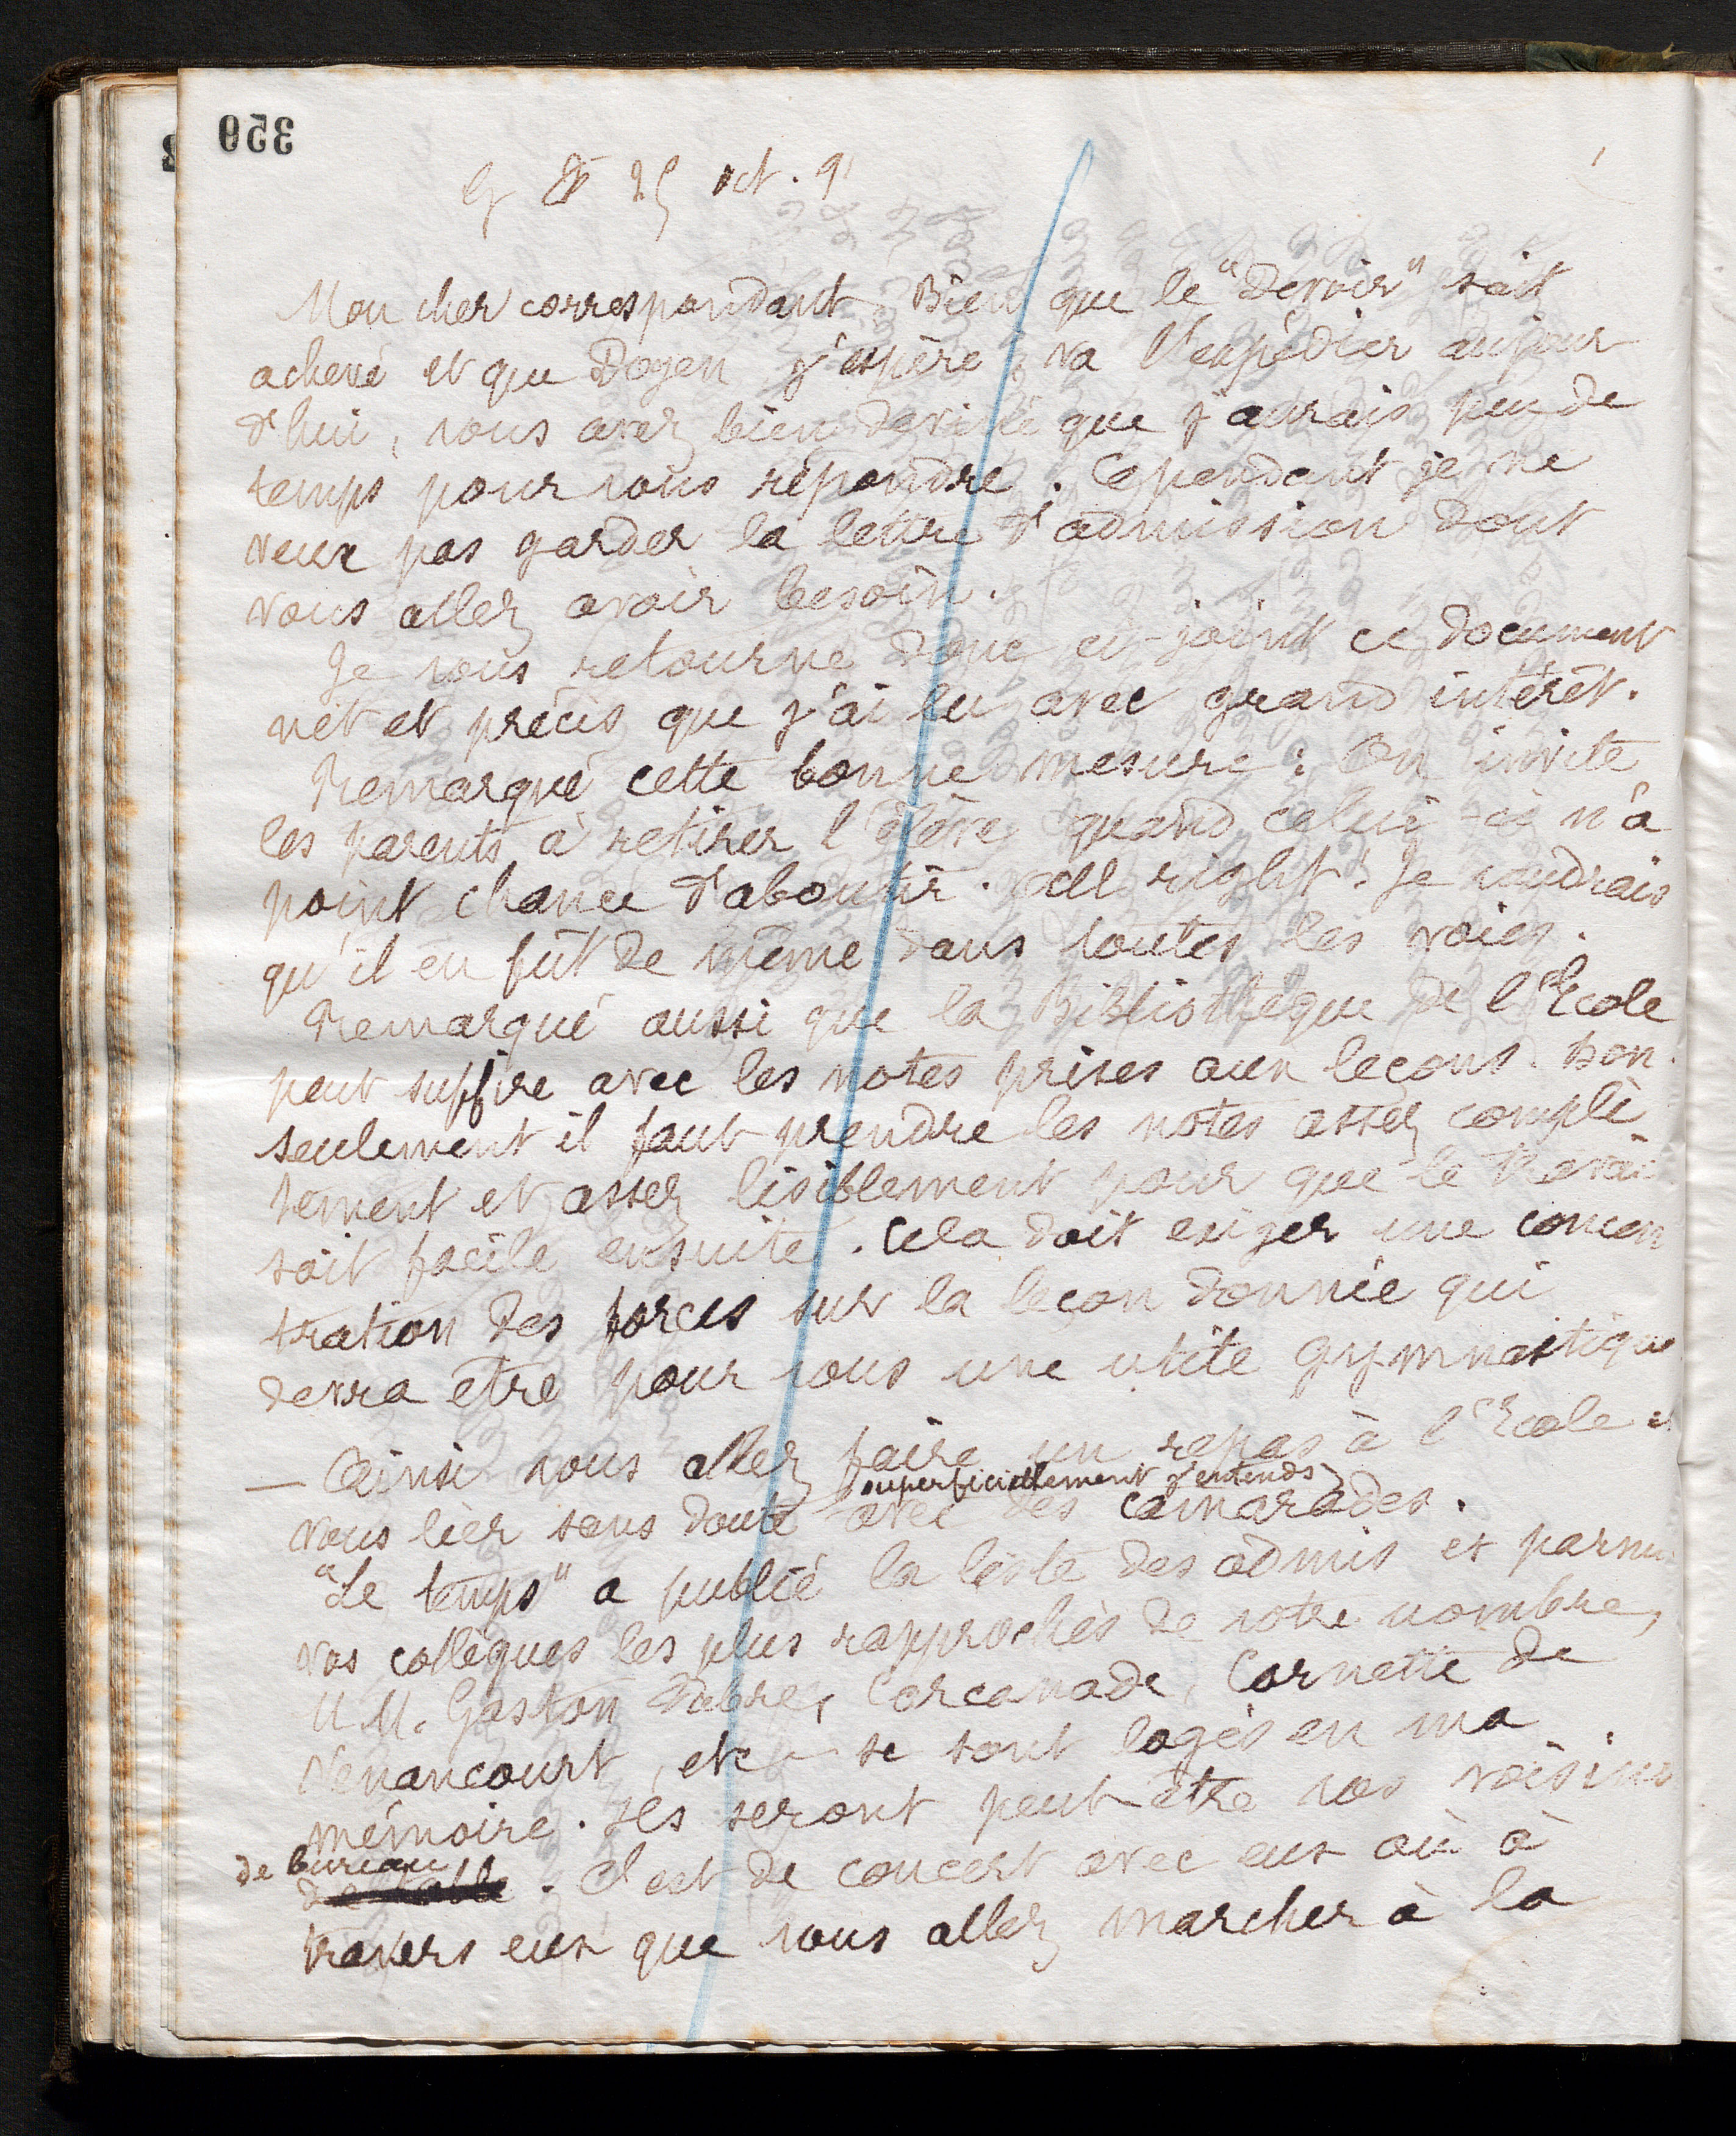 350
G 25 oct. 9
Mon cher correspondant. Bien que le "Devoir" soit
achevé et que Doyen, j'espère, va l'expédier aujour
d'hui, vous avez bien deviné que j'aurais peu de
temps pour vous répondre. Cependant je ne
veux pas garder la lettre d'admission dont
vous allez avoir besoin.
Je vous retourne donc ci-joint ce document
net et précis que j'ai lu avec grand intérêt.
Remarqué cette bonne mesure : On invite
les parents à retirer l'élève quand celui-ci n'a
point chance d'aboutir. All right ! Je voudrais
qu'il en fût de même dans toutes les voies.
Remarqué aussi que la Bibliothèque de l'Ecole
peut suffire avec les notes prises aux leçons. Bon.
seulement il faut prendre les notes assez complè
tement et assez lisiblement pour que le travai
soit facile ensuite. Cela doit exiger une concen
tration des forces sur la leçon donnée qui
devra être pour vous une utile gymnastique
— Ainsi vous allez faire un repas à l'Ecole
superficiellement j'entends
vous lier sans doute avec des camarades.
"Le temps" a publié la liste des admis et parmi
vos collègues les plus rapprochés de votre nombre,
M.M. Gaston Fabre, Carcanade, Cornette de
Venancourt, etc se sont logés en ma
mémoire. Ils seront peut-être vos voisins
de bureau
de table. C'est de concert avec eux où à
travers eux que vous allez marcher à la